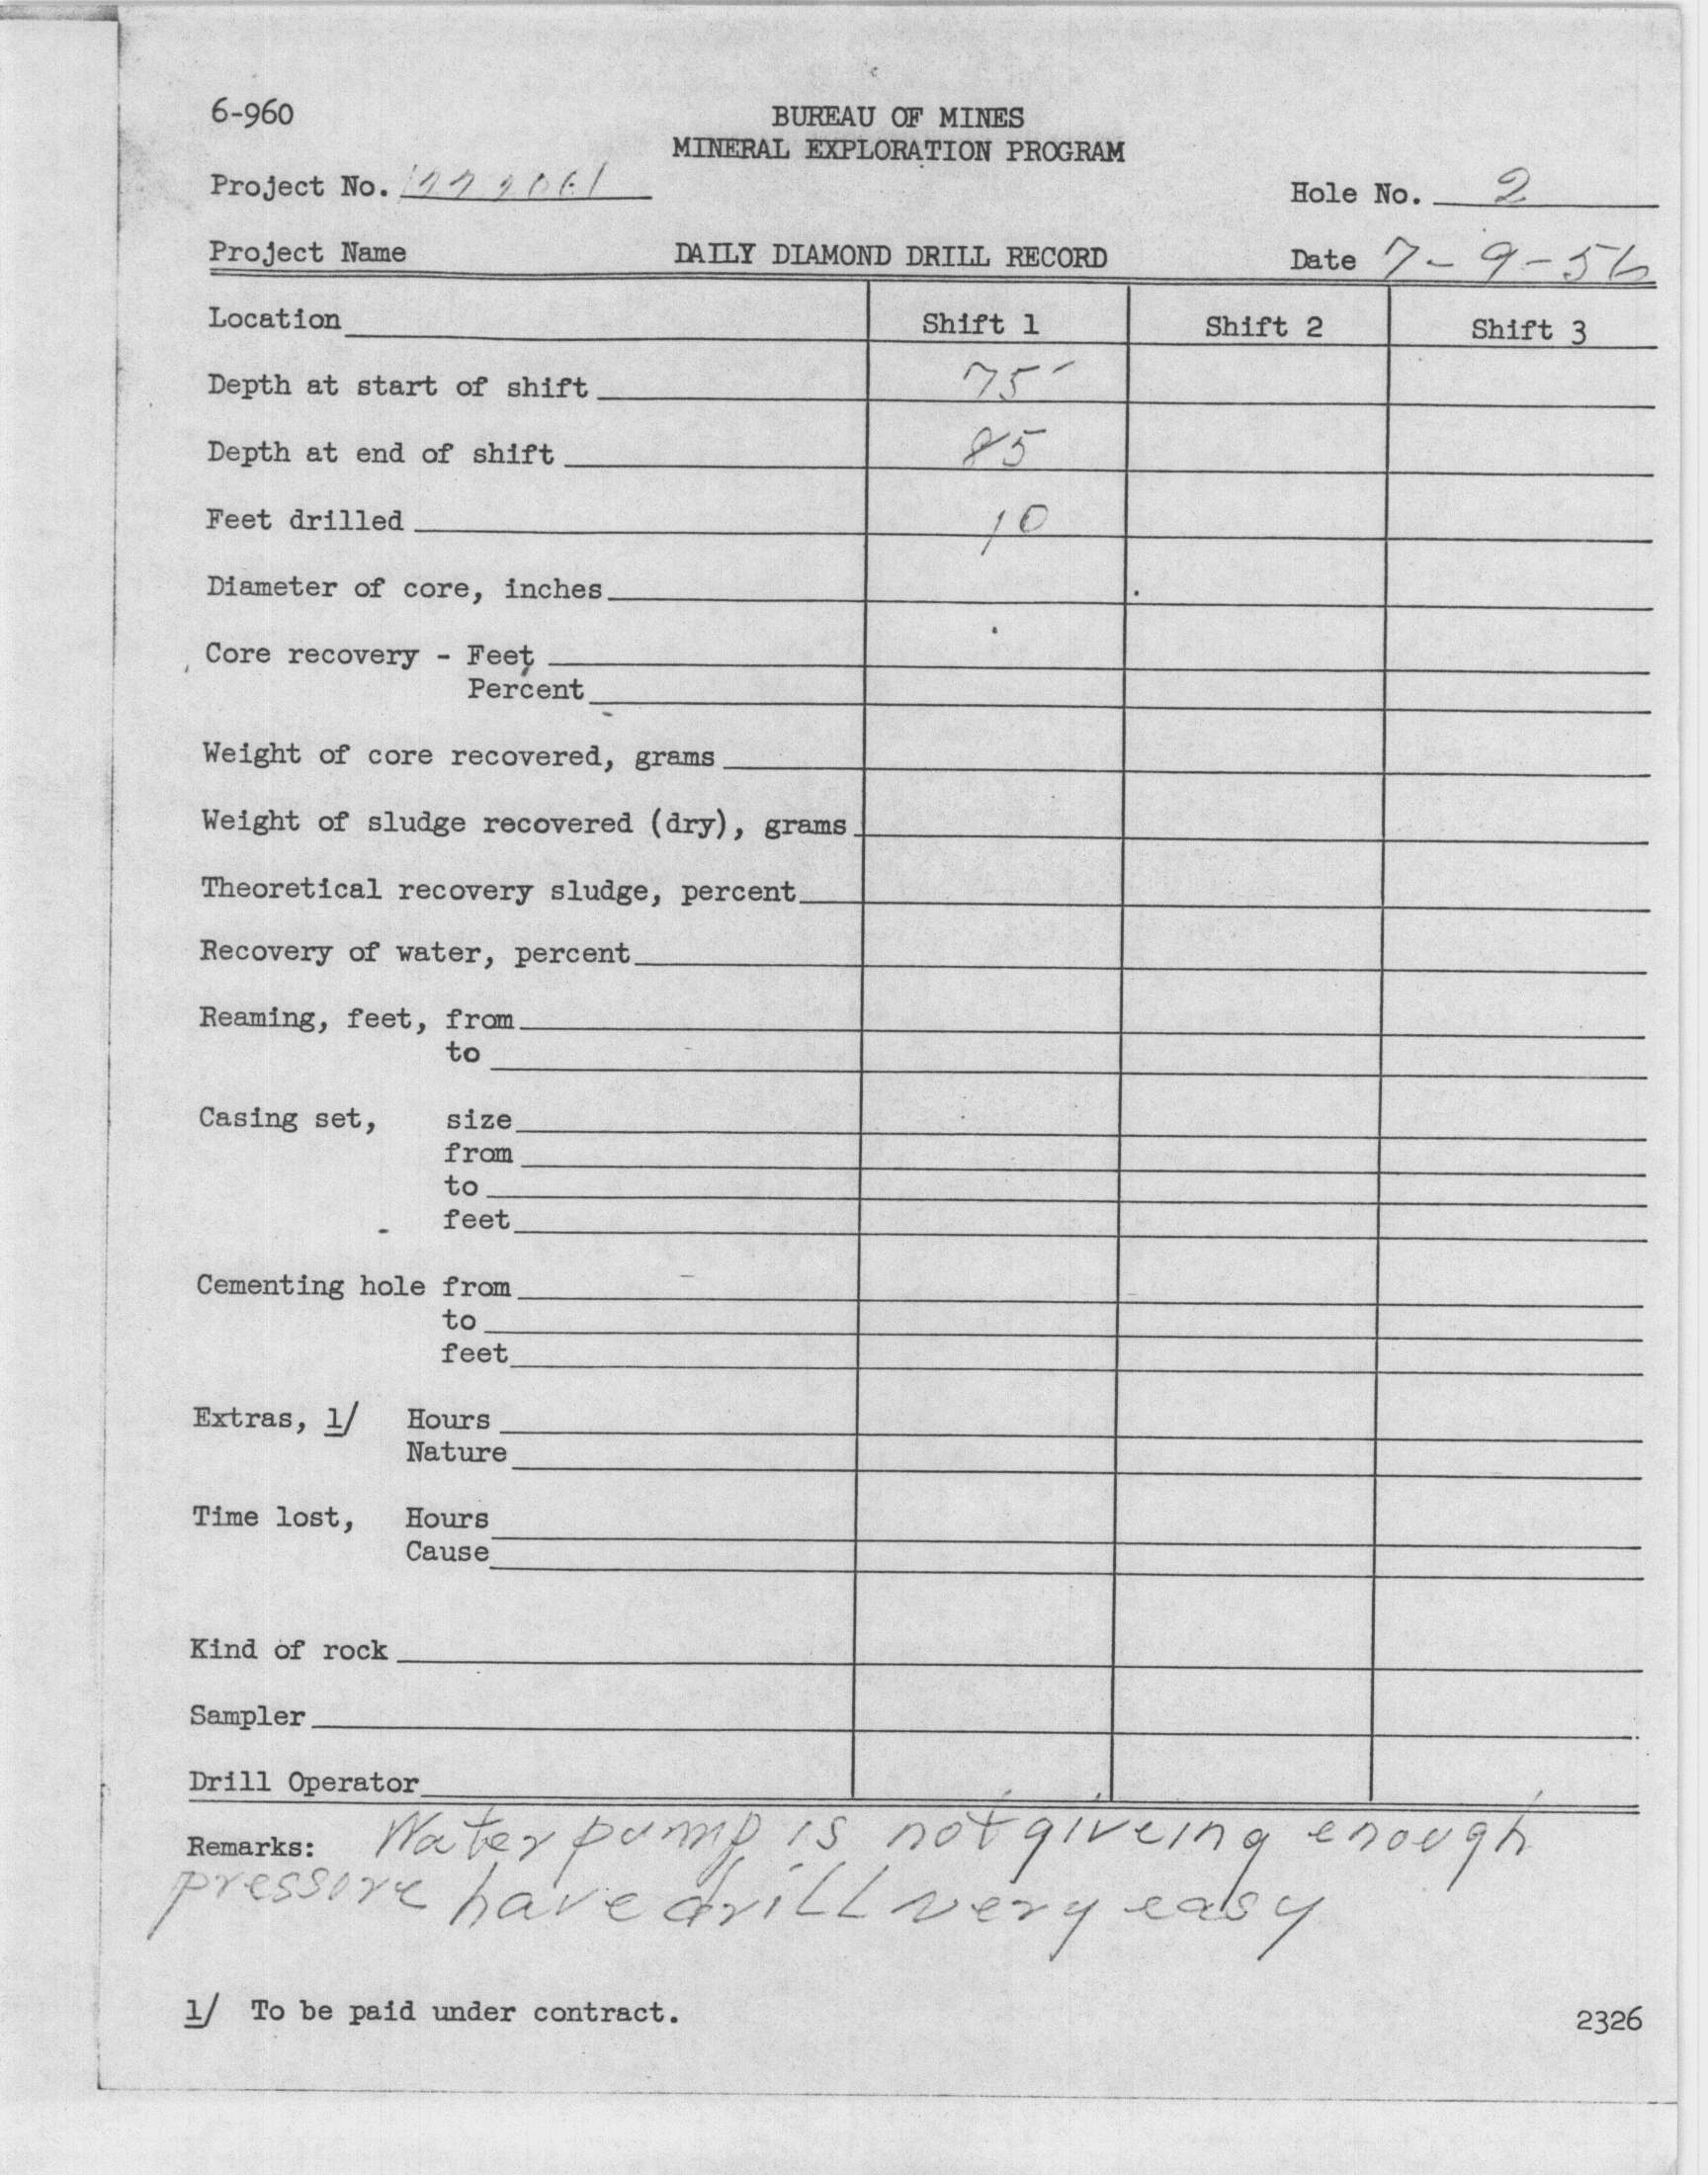 6-960
BUREAU OF MINES
MINERAL EXPLORATION PROGRAM
Project No.
Hole No. 2
Project Name
DAILY DIAMOND DRILL RECORD
Date 7-9-56
Location
Shift 1
Shift 2
Shift 3
Depth at start of shift 75
Depth at end of shift 85
Feet drilled 10
Diameter of core, inches
Core recovery - Feet
Percent
Weight of core recovered, grams
Weight of sludge recovered (dry), grams
Theoretical recovery sludge, percent
Recovery of water, percent
Reaming, feet, from
to
Casing set, size
from
to
feet
Cementing hole from
to
feet
Extras, 1/ Hours
Nature
Time lost, Hours
Cause
Kind of rock
Sampler
Drill Operator
Remarks: Water pump is not giveing enough
pressure have drill very easy
1/ To be paid under contract.
2326